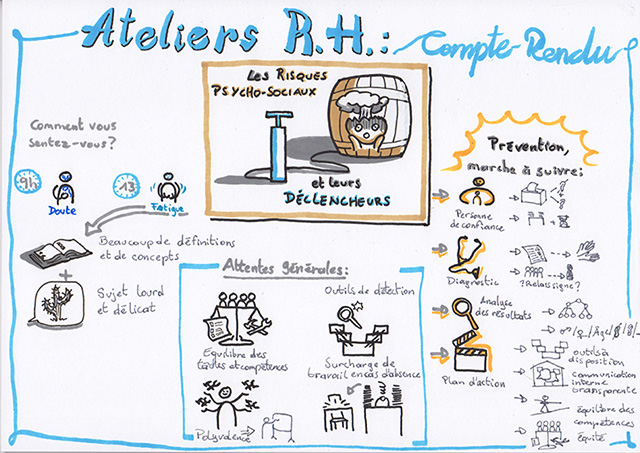 Ateliers R.H.: Compte-Rendu
Les Risques
Psycho-Sociaux
et leurs
Déclencheurs
Comment vous
sentez-vous?
9h
Doute
13h
Fatigue
Beaucoup de définitions
et de concepts
+
Sujet lourd
et délicat
Attentes générales:
Equilibre des
tâches et compétences
Polyvalence
Outils de détection
Surcharge de
travail en cas d'absence
Prévention,
marche à suivre:
Personne
de confiance
Diagnostic
? Relais ligne ?
Analyse
des résultats
Plan d'action
outils à
disposition
communication
interne
transparente
équilibre des
compétences
Equité